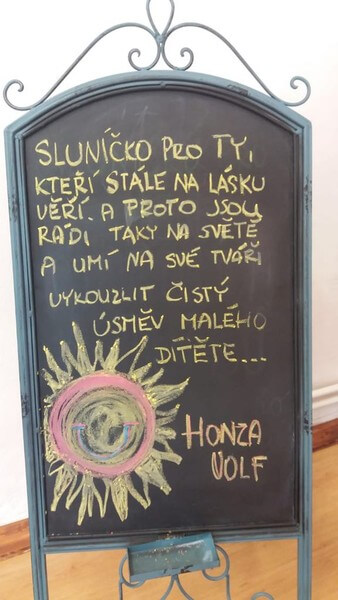 SLUNÍČKO PRO TY,
KTEŘÍ STÁLE NA LÁSKU
VĚŘÍ. A PROTO JSOU
RÁDI TAKY NA SVĚTĚ
A UMÍ NA SVÉ TVÁŘI
VYKOUZLIT ČISTÝ
ÚSMĚV MALÉHO
DÍTĚTE...
HONZA
VOLF